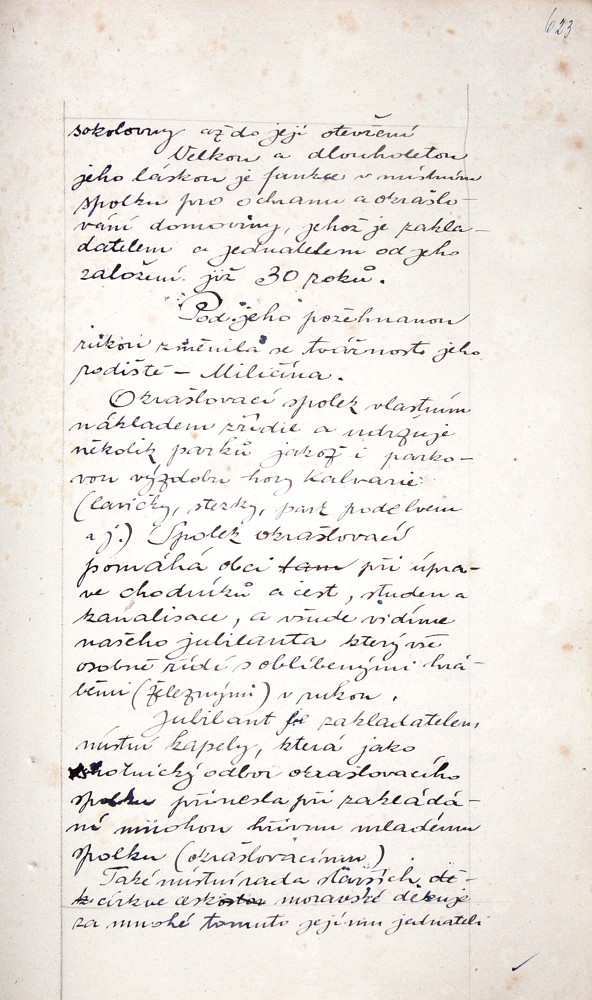 623
sokolovny až do její otevření
Velkou a dlouholetou
jeho láskou je funkce v místním
spolku pro ochranu a okrašlo-
vání domoviny, jehož je zakla-
datelem a jednatelem od jeho
založení již 30 roků.
Pod jeho požehnanou
rukou změnila se tvářnost jeho
rodiště – Miličína.
Okrašlovací spolek vlastním
nákladem zřídil a udržuje
několik parků jakož i parko-
vou výzdobu hory Kalvarie
(lavičky, stezky, park pode lvem
a j.) Spolek okrašlovací
pomáhá obci tam při úpra-
ve chodníků a cest, studen a
kanalisace, a všude vidíme
našeho jubilanta který vše
osobně řídí s oblíbenými hrá-
běmi (železnými) v rukou.
Jubilant je zakladatelem
místní kapely, která jako
odbor okrašlovacího
spolku přinesla při zakládá-
ní mnohou hřivnu mladému
spolku (okrašlovacímu)
Také místní rada starších
církve česko moravské děkuje
za mnohé tomuto jejímu jednateli